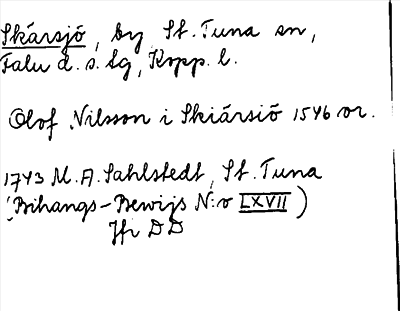 Skársjö, by St. Tuna sn,
Falu d. s. lg, Kopp. l.
Olof Nilsson i Skiársiö 1546 or.
1743 M. A. Sahlstedt, St. Tuna
(Bihangs-Bewijs N:o LXVII)
Jfr DD